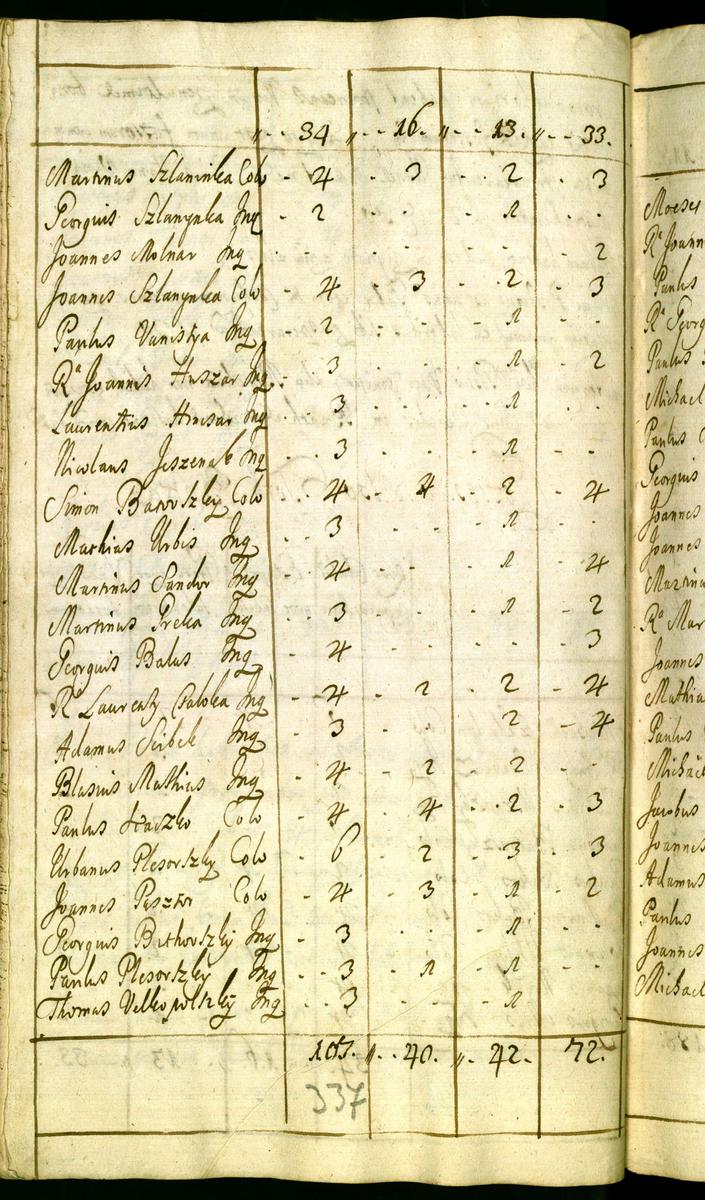 „ - - 34 „ - - 16. „ - - 13. „ - - 33.
Martinus Szlaninka Colo - 4 - 3 - 2 - 3
Georgius Szlaninka Inq - 2 . . 1 . .
Joannes Molnar Inq . . . . . . 2
Joannes Szlaninka Colo - 4 - 3 - 2 - 3
Paulus Vanistra Inq - 2 . . 1 - -
Ra Joannis Huszar Inq . - 3 . . 1 - 2
Laurentius Huszar Inq - 3 . . 1 . .
Nicolaus Jeszenak Inq - 3 . . 1 - -
Simon Barovszky Colo - 4 - 4 - 2 - 4
Mathias Urbis Inq - 3 . . 1 - .
Martinus Sandor Inq - 4 . . 1 - 4
Martinus Preka Inq - 3 . . 1 - 2
Georgius Balas Inq - 4 . . . . 3
Ra Laurenty Inq - 4 - 2 - 2 - 4
Adamus Inq - 3 . . 2 - 4
Blasius Mathias Inq - 4 - 2 - 2 - .
Paulus Colo - 4 - 4 - 2 - 3
Urbanus Plesovszky Colo - 6 - 2 - 3 - 3
Joannes Pasztor Colo - 4 - 3 - 1 - 2
Georgius Bethovszky Inq - 3 . . 1 - -
Paulus Plesovszky Inq - 3 - 1 - 1 - -
Thomas Velkopolszky Inq - 3 . . 1
107. „ - - 40. „ - - 42. - 72.
337
Moeses
Ra Joann
Paulus
Ra Georg
Paulus
Michael
Paulus
Georgius
Joannes
Joannes
Martinu
Ra Mar
Joannes
Mathia
Paulus
Michae
Jacobus
Joannes
Adamus
Paulus
Joannes
Michael